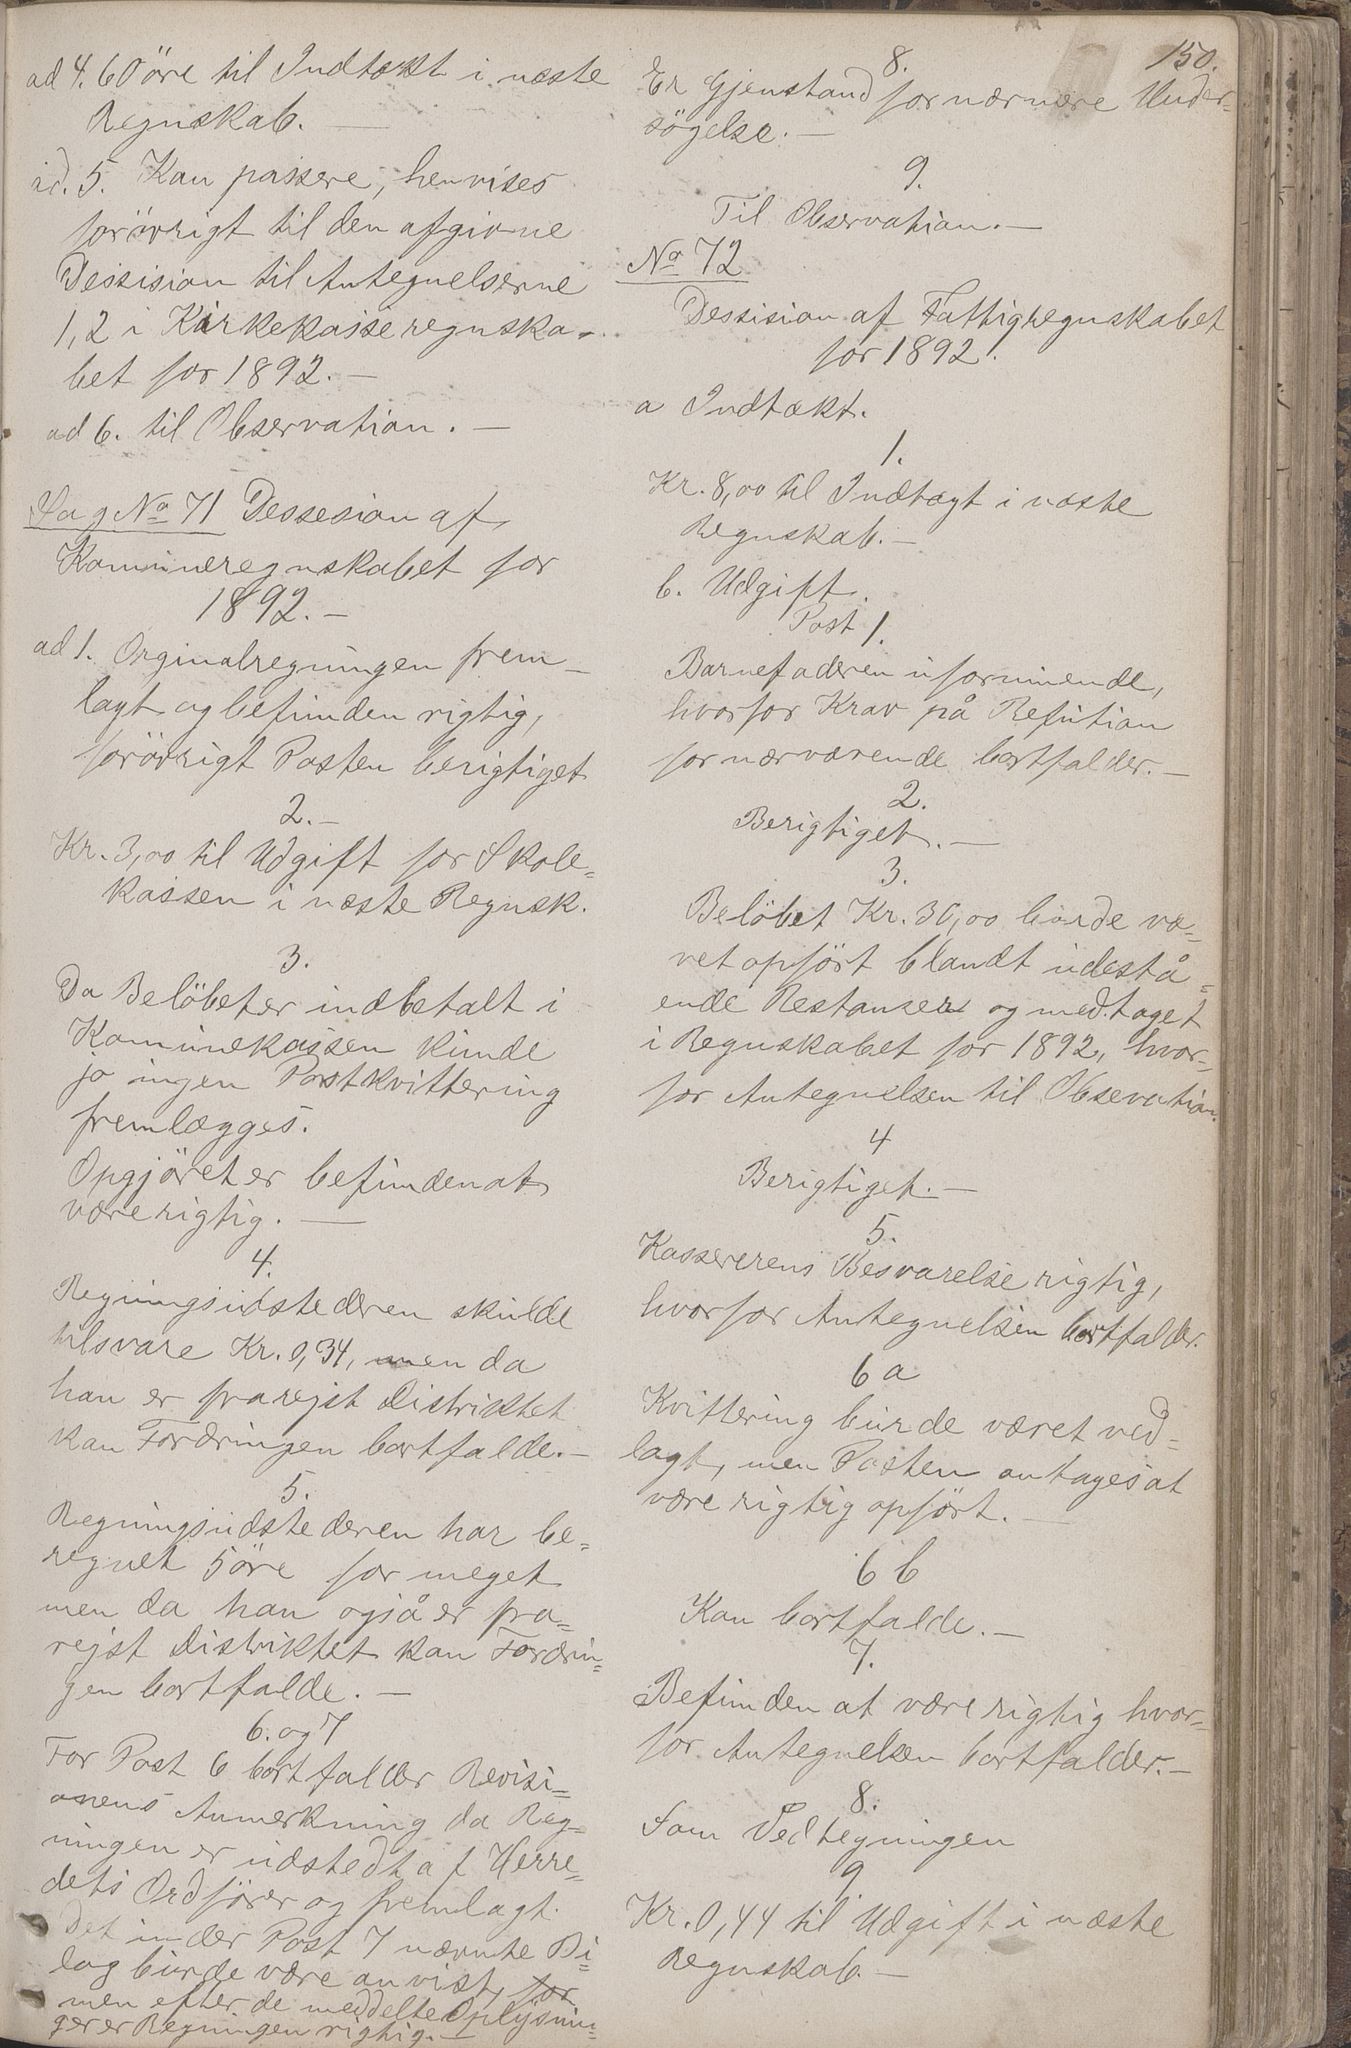 150.
ad 4. 60 öre til Indtækt i næste
Regnskab. —
ad. 5. Kan passere, henvises
forövrigt til den afgivne
Dessision til Antegnelserne
1, 2 i Kirkekasseregnska-
bet for 1892. —
ad 6. til Observation. —
Sag No 71 Dessesion af
Kommuneregnskabet for
1892. —
ad 1. Orginalregningen frem-
lagt og befunden rigtig,
forövrigt Posten berigtiget
2. —
Kr. 3,00 til Udgift for Skole-
kassen i næste Regnsk.
3.
Da Belöbet er indbetalt i
Kommunekassen kunde
jo ingen Postkvittering
fremlægges.
Opgjöret er befunden at
være rigtig. —
4.
Regningsudstederen skulde
tilsvare Kr. 0,34, men da
han er frarejst Distriktet
kan Fordringen bortfalde. —
5.
Regningsudstederen har be-
regnet 5 öre for meget
men da han også er fra-
rejst Distriktet kan Fordrin-
gen bortfalde. —
6. og 7
For Post 6 bortfalder Revisi-
onens Anmerkning da Reg-
ningen er udstedt af Herre-
dets Ordförer og fremlagt.
Det under Post 7 nævnte Bi-
lag burde være anvist, for
men efter de meddelte Oplysnin-
ger er Regningen rigtig. —
8.
Er Gjenstand for nærmere Under-
sögelse. —
9.
Til Observation. —
No 72
Dessision af Fattigregnskabet
for 1892.
a Indtækt.
1.
Kr. 8,00 til Indtægt i næste
Regnskab. —
b. Udgift.
Post 1.
Barnefaderen uformuende,
hvorfor Krav på Refution
for nærværende bortfalder. —
2.
Berigtiget. —
3.
Belöbet Kr. 30,00 burde væ-
ret opfört blandt udestå-
ende Restanser og medtaget
i Regnskabet for 1892, hvor-
for Antegnelsen til Obsevation.
4
Berigtiget. —
5.
Kassererens Besvarelse rigtig,
hvorfor Antegnelsen bortfalder.
6 a
Kvittering burde været ved-
lagt, men Posten antages at
være rigtig opfört. —
6 b
Kan bortfalde. —
7.
Befunden at være rigtig hvor-
for Antegnelsen bortfalder. —
8.
Som Vedtegningen
9
Kr. 0,44 til Udgift i næste
Regnskab. —